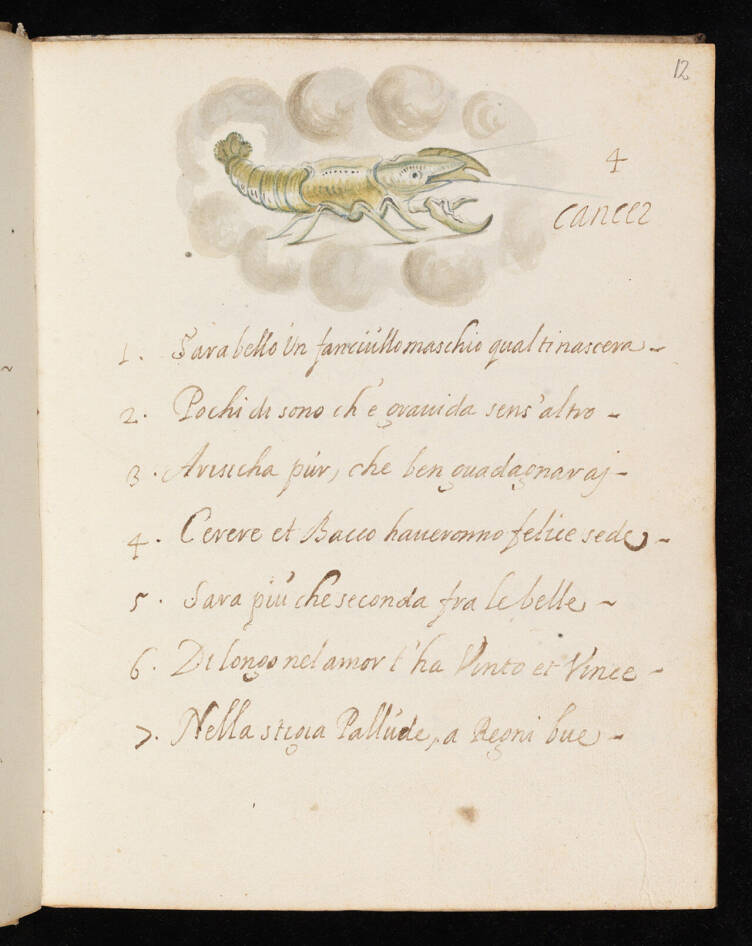 12
4
cancer
1. Sara bello Un fanciullo maschio qual ti nascera -
2. Pochi di sono ch'è gravida sens'altro -
3. Arisicha pur, che ben guadagnaraj -
4. Cerere et Bacco haveronno felice sede -
5. Sara più che seconda fra le belle -
6. Di longo nel amor t'ha Vinto et Vince -
7. Nella stigia Pallude, a Regni bue -